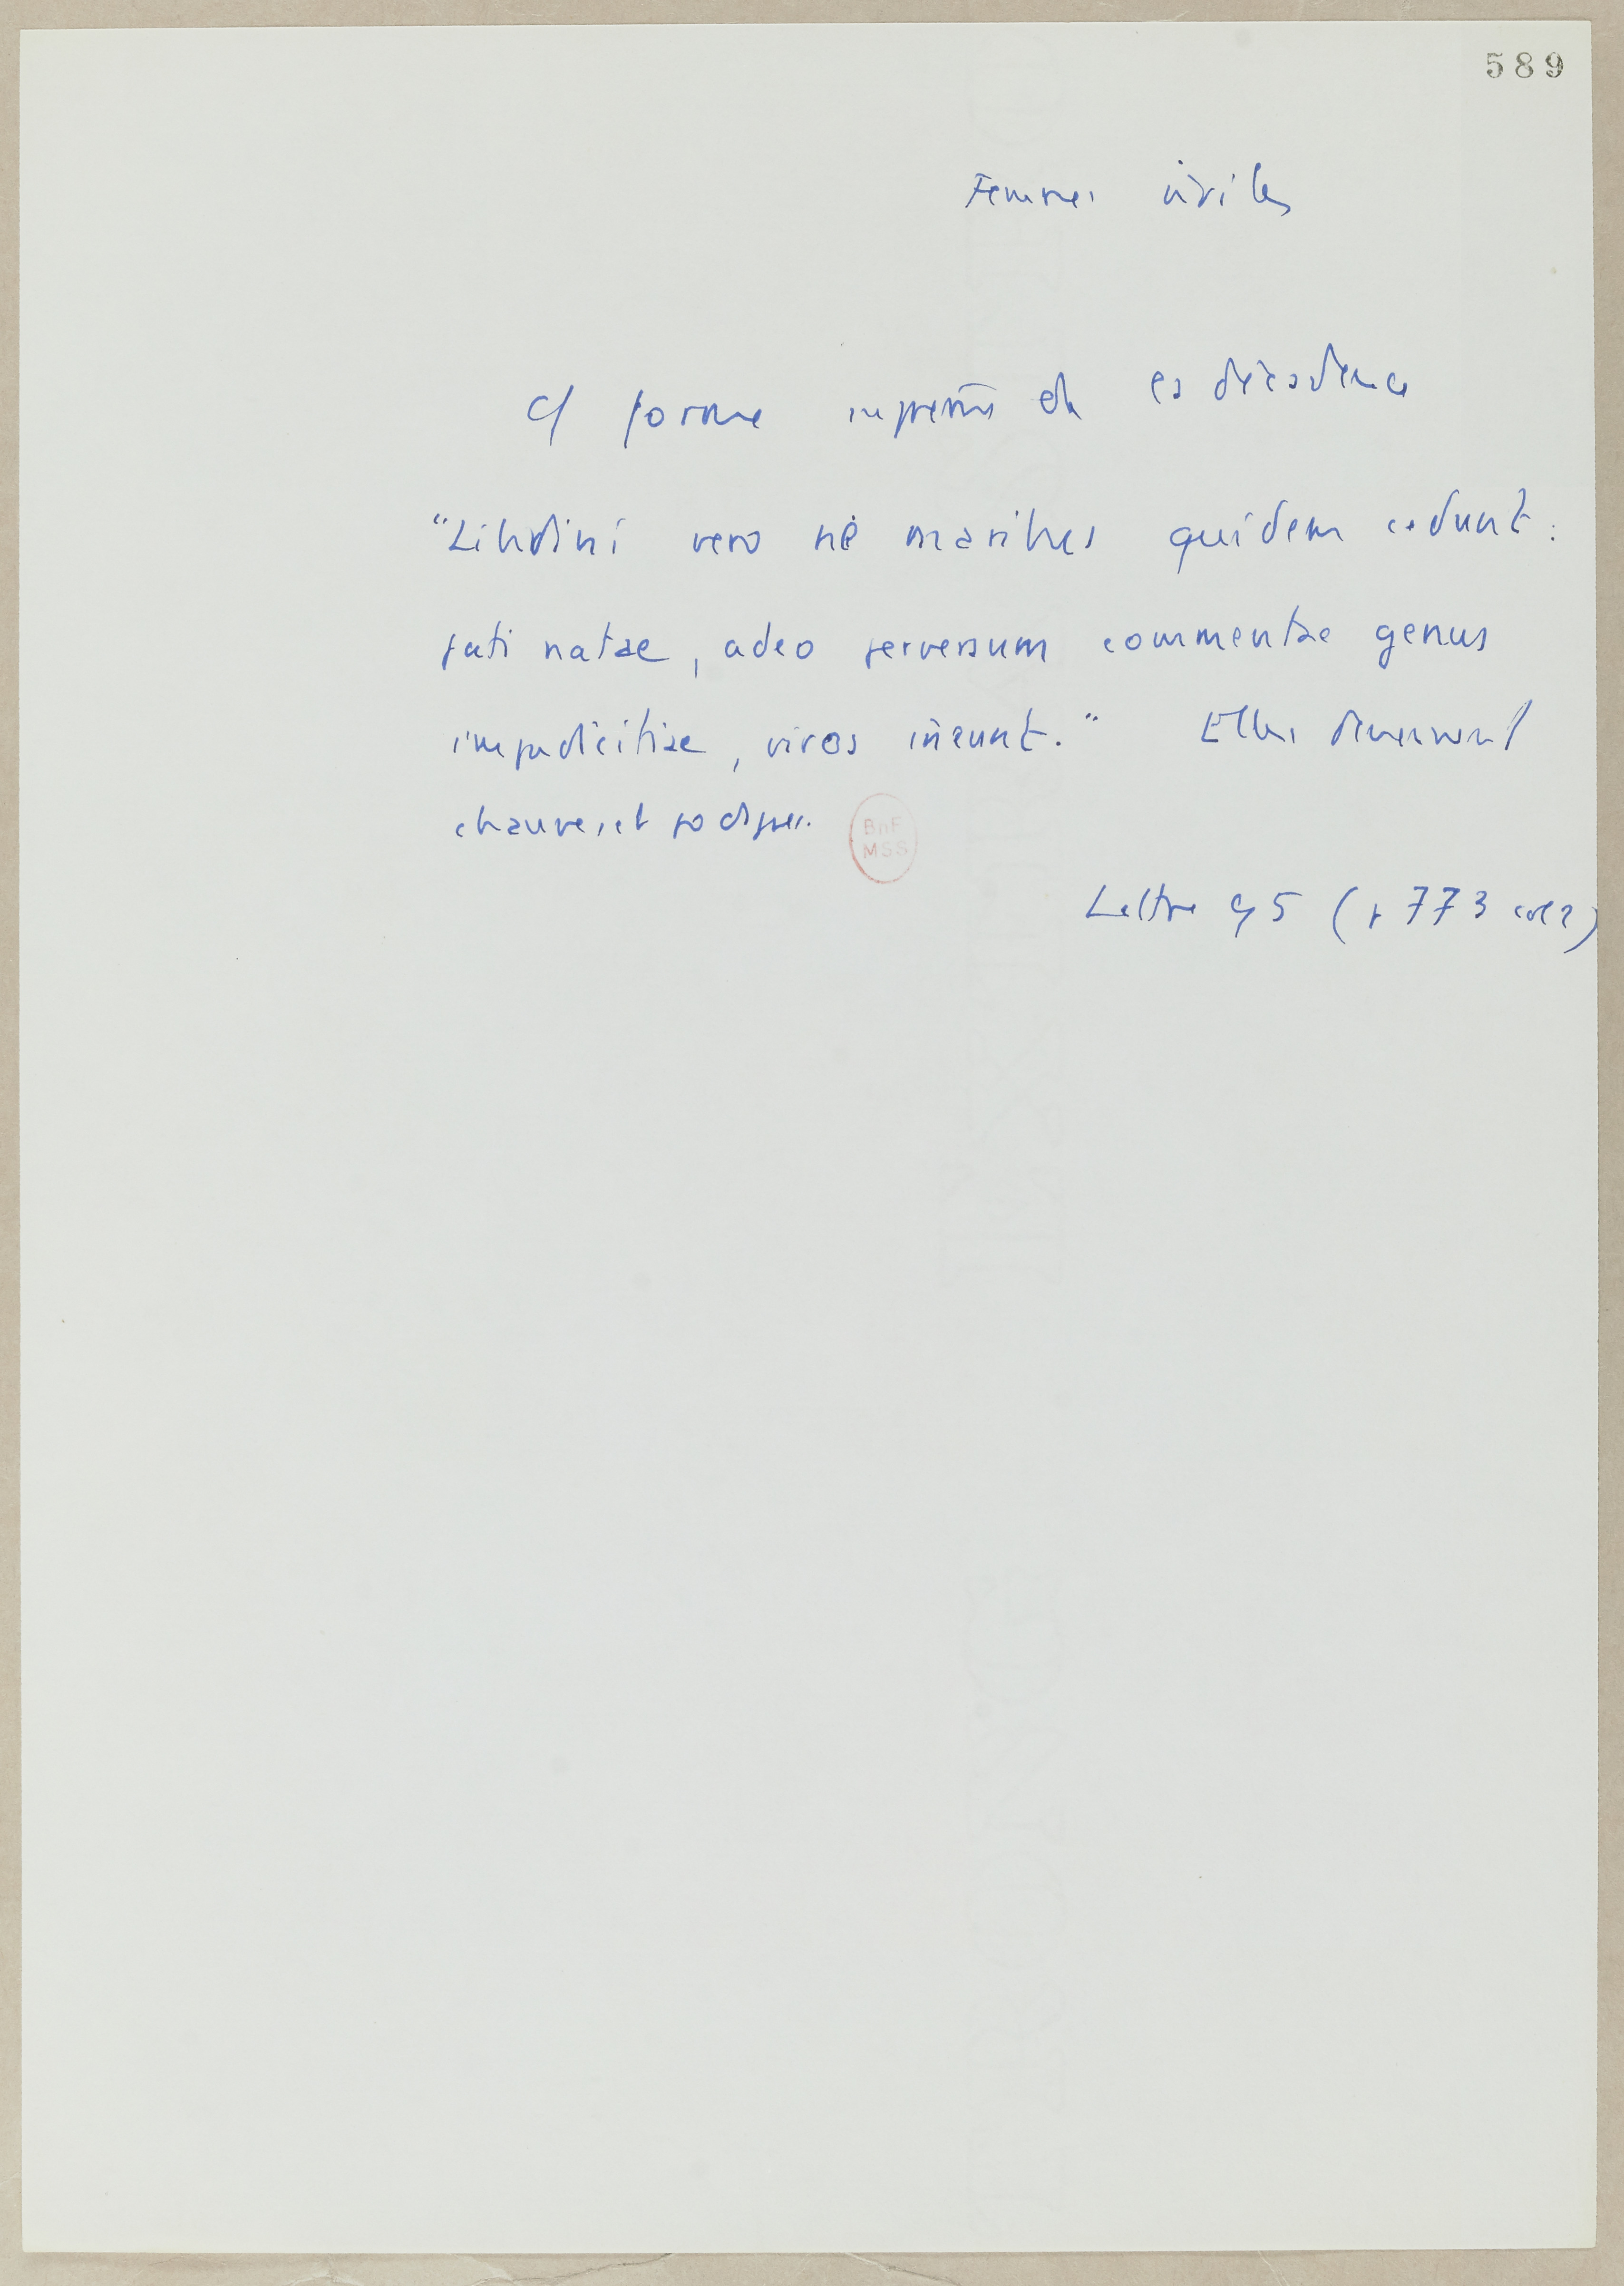 589
Femmes viriles
cf forme suprême de la décadence
"Libidini vero ne maribus quidem cedunt :
pati natae, adeo perversum commentae genus
impudicitiae, viros ineunt." Elles deviennent
chauves et podagres.
BnF
MSS
Lettre 95 (p 773 col 2)